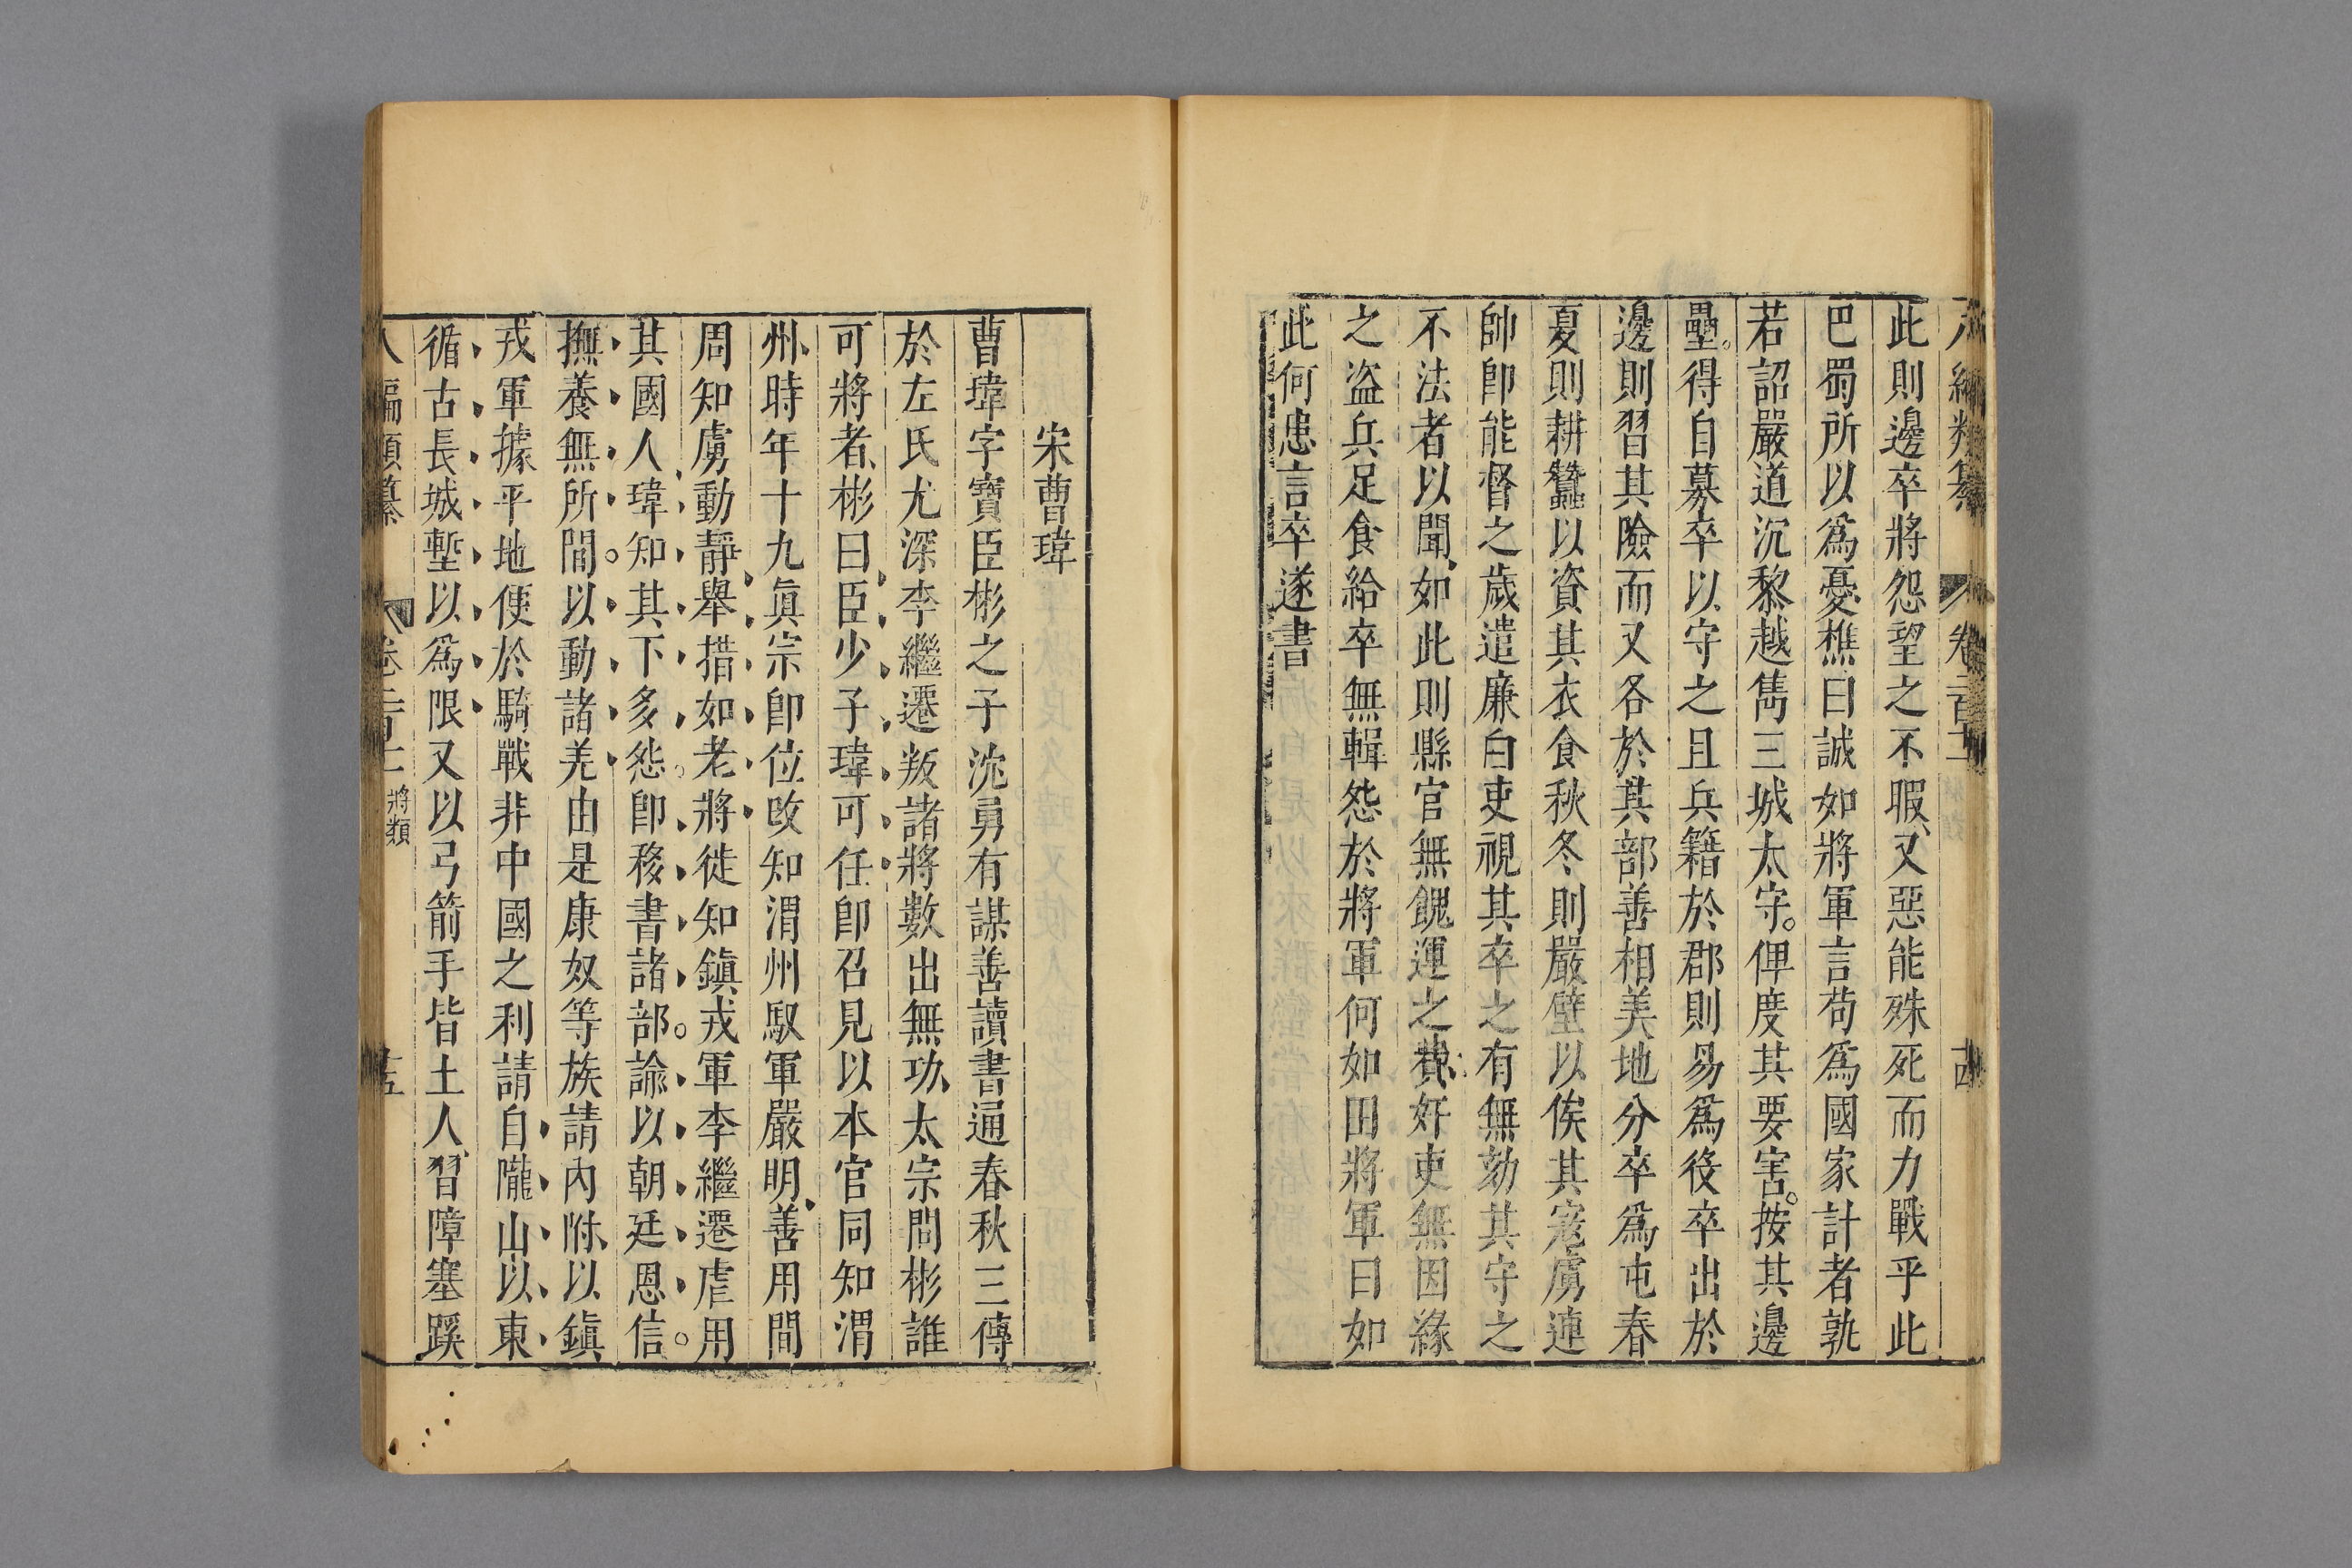 此則邊卒將怨望之不暇又惡能殊死而力戰乎此
巴蜀所以爲憂樵曰誠如將軍言苟爲國家計者孰
若詔嚴道沉黎越雋三城太守俾度其要害按其邊
壘得自募卒以守之且兵籍於郡則易爲役卒出於
邊則習其險而又各於其部善相美地分卒爲屯春
夏則耕蠶以資其衣食秋冬則嚴壁以俟其寇虜連
帥卽能督之歲遣廉白吏視其卒之有無劾其守之
不法者以聞如此則縣官無餽運之費奸吏無因緣
之盜兵足食給卒無輯怨於將軍何如田將軍曰如
此何患言卒遂書
宋曹瑋
曹瑋字寶臣彬之子沈勇有謀善讀書通春秋三傳
於左氏尤深李繼遷叛諸將數出無功太宗問彬誰
可將者彬曰臣少子瑋可任卽召見以本官同知渭
州時年十九眞宗卽位改知渭州馭軍嚴明善用間
周知虜動靜舉措如老將徙知鎭戎軍李繼遷虐用
其國人瑋知其下多怨卽移書諸部諭以朝廷恩信
撫養無所間以動諸羌由是康奴等族請內附以鎭
戎軍據平地便於騎戰非中國之利請自隴山以東
循古長城塹以爲限又以弓箭手皆土人習障塞蹊
編類纂 將類 十五